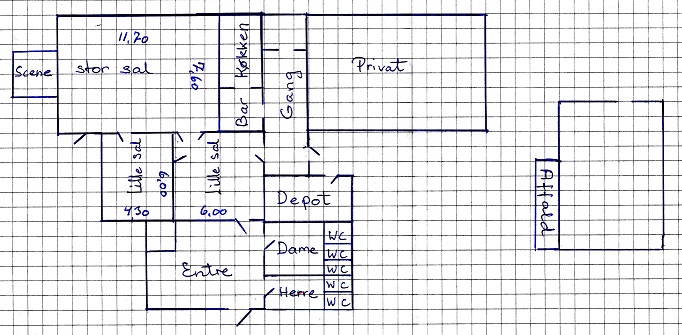 11,70
Scene
stor sal
7,60
Køkken
Bar
Gang
Privat
Lille sal
6,00
4,30
Lille sal
6,00
Depot
Affald
Entre
Dame
Herre
WC
WC
WC
WC
WC